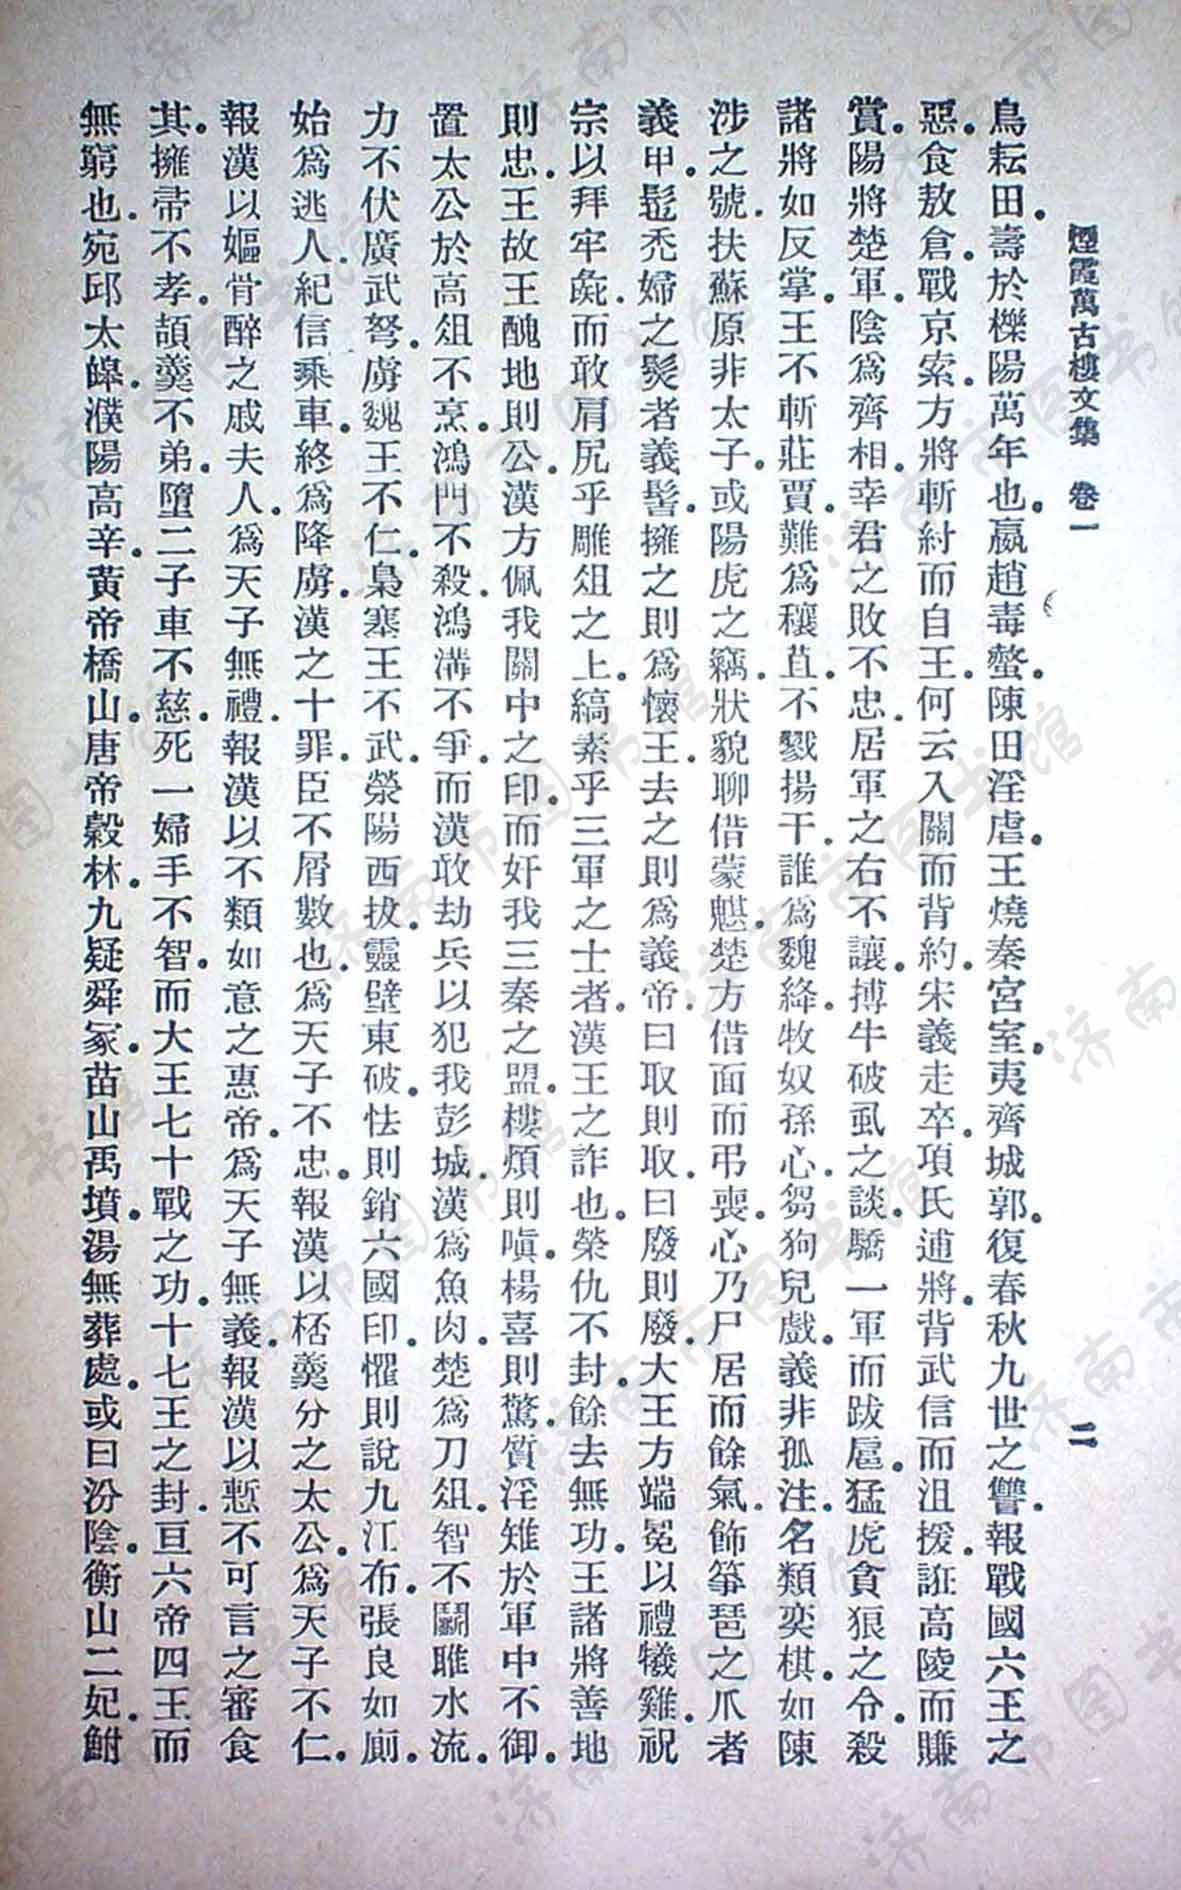 煙霞萬古樓文集 卷一 二
鳥耘田。壽於櫟陽萬年也。嬴趙毒螫。陳田淫虐。王燒秦宮室。夷齊城郭。復春秋九世之讐。報戰國六王之
惡。食敖倉。戰京索。方將斬紂而自王。何云入關而背約。宋義走卒。項氏逋將。背武信而沮援。誑高陵而賺
賞。陽將楚軍。陰爲齊相。幸君之敗不忠。居軍之右不讓。搏牛破虱之談。驕一軍而跋扈。猛虎貪狼之令。殺
諸將如反掌。王不斬莊賈。難爲穰苴。不戮揚干。誰爲魏絳。牧奴孫心。芻狗兒戲。義非孤注。名類奕棋。如陳
涉之號。扶蘇原非太子。或陽虎之竊。狀貌聊借蒙魌。楚方借面而弔喪。心乃尸居而餘氣。飾箏琶之爪者
義甲。髢禿婦之髮者義髻。擁之則爲懷王。去之則爲義帝。曰取則取。曰廢則廢。大王方端冕以禮犧雞。祝
宗以拜牢彘。而敢肩尻乎雕俎之上。縞素乎三軍之士者。漢王之詐也。榮仇不封。餘去無功。王諸將善地
則忠。王故王醜地則公。漢方佩我關中之印。而奸我三秦之盟。樓煩則嗔。楊喜則驚。質淫雉於軍中不御。
置太公於高俎不烹。鴻門不殺。鴻溝不爭。而漢敢劫兵以犯我彭城。漢爲魚肉。楚爲刀俎。智不鬭。睢水流。
力不伏。廣武弩。虜魏王不仁。梟塞王不武。滎陽西拔。靈壁東破。怯則銷六國印。懼則說九江布。張良如廁。
始爲逃人。紀信乘車。終爲降虜。漢之十罪。臣不屑數也。爲天子不忠。報漢以桮羹分之太公。爲天子不仁。
報漢以嫗骨醉之戚夫人。爲天子無禮。報漢以不類如意之惠帝。爲天子無義。報漢以慙不可言之審食
其。擁篲不孝。頡羹不弟。墮二子車不慈。死一婦手不智。而大王七十戰之功。十七王之封。亘六帝四王而
無窮也。宛邱太皞。濮陽高辛。黃帝橋山。唐帝穀林。九疑舜冢。苗山禹墳。湯無葬處。或曰汾陰。衡山二妃。鮒